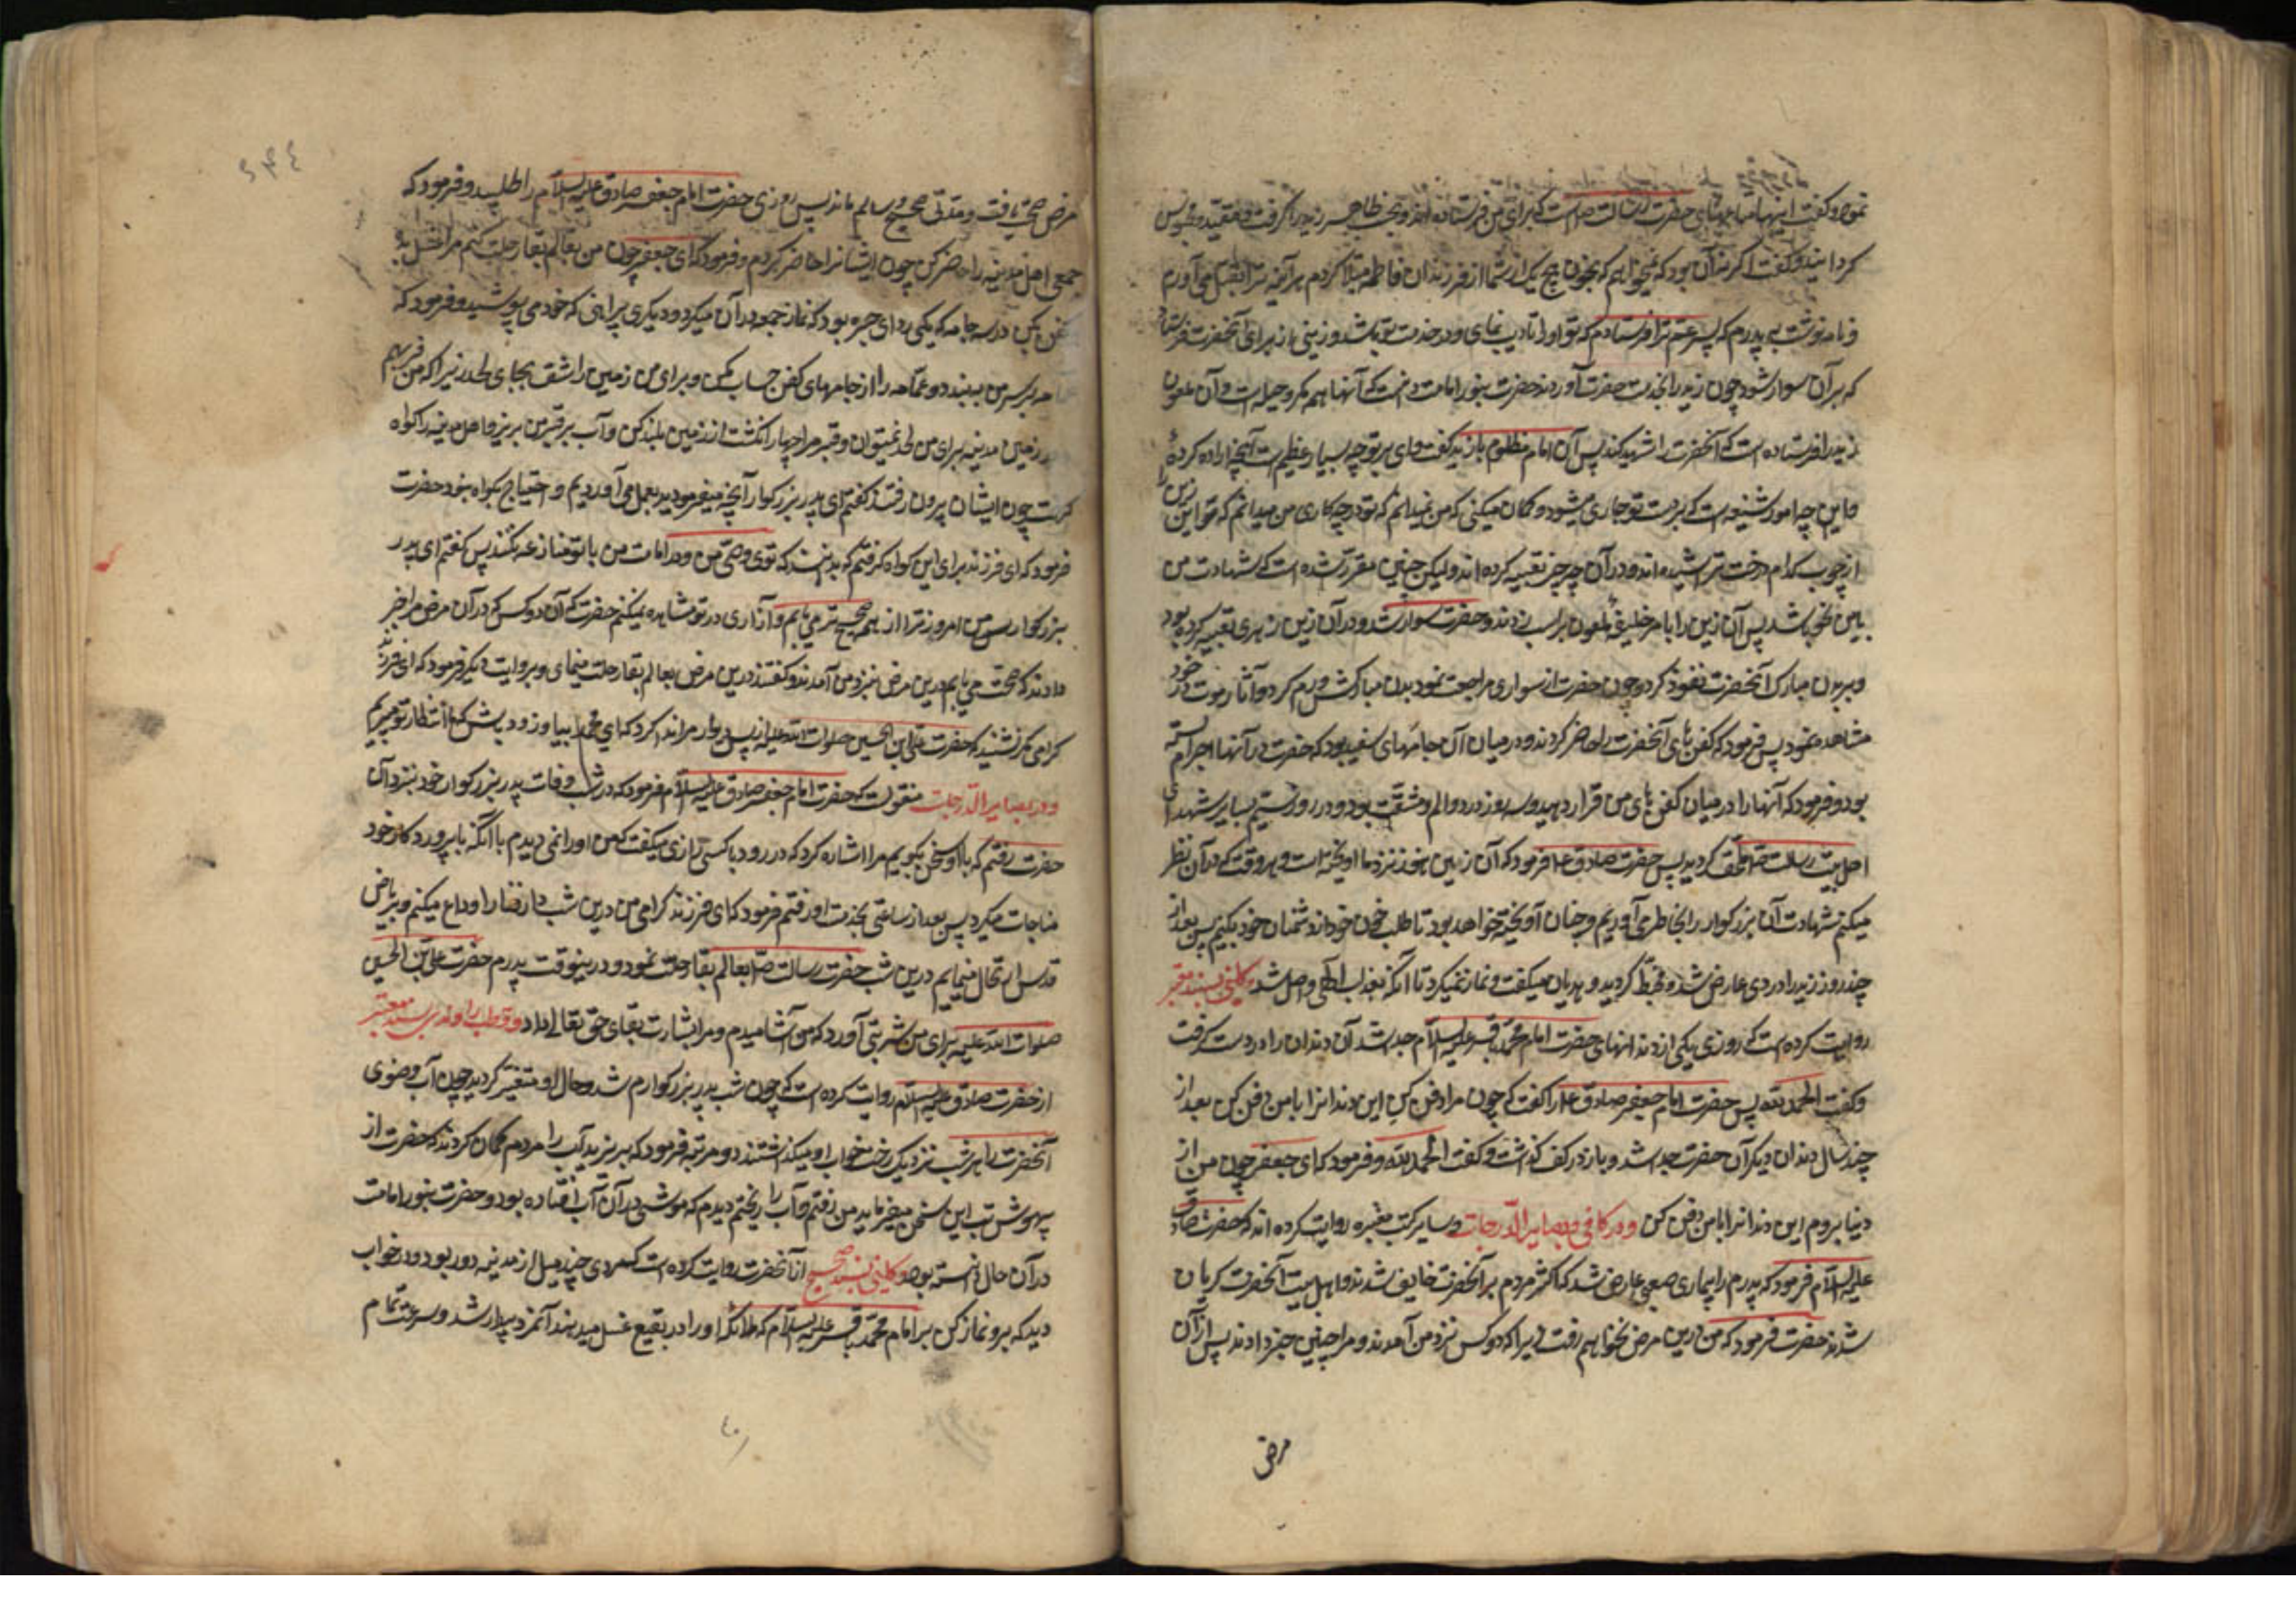 نمود و گفت اینها متاعهای حضرت رسالت ص است که برای من فرستاده اند و بحسب ظاهر زید را گرفت و مقید و محبوس
گردانید و گفت اگر نه آن بود که نمیخواهم که بخون هیچ یک از شما از فرزندان فاطمه مبتلا کردم هر آینه ترا بقتل می آوردم
و نامه نوشت به پدرم که پسر عمّ ترا فرستادم که تو او را تادیب نمای و در خدمت تو باشد و زینی از برای آنحضرت فرستاد
که بر آن سوار شود چون زید را بخدمت حضرت آوردند حضرت بنور امامت دانست که آنها همه مکر و حیله است و آن ملعون
زید را فرستاده است که آنحضرت را شهید کند پس آن امام مظلوم با زید گفت وای بر تو چه بسیار عظیم است آنچه اراده کردهٔ
و این چه امور شنیعه است که بر دست تو جاری میشود و گمان میکنی که من نمیدانم که تو در چه کاری من میدانم که تو این زین را
از چوب کدام درخت تراشیده اند و در آن چه چیز تعبیه کرده اند و لیکن چنین مقرر شده است که شهادت من
باین نحو باشد پس آن زین را بامر خلیفهٔ ملعون بر اسب زدند و حضرت سوار شد و در آن زین زهری تعبیه کرده بود
و ببدن مبارک آنحضرت نفوذ کرد و چون حضرت از سواری مراجعت نمود بدن مبارکش ورم کرد و آثار موت در خود
مشاهده نمود پس فرمود که کفن های آنحضرت را حاضر کردند و در میان آن جامهای سفید بود که حضرت در آنها احرام بسته
بود و فرمود که آنها را در میان کفن های من قرار دهید و سه روز در درد و الم و مشقت بود و در روز سیّم بسایر شهدای
اهل بیت رسالت ص ملحق گردید پس حضرت صادق ع فرمود که آن زین هنوز نزد ما آویخته است و هر وقت که در آن نظر
میکنم شهادت آن بزرگوار را بخاطر می آوریم و چنان آویخته خواهد بود تا طلب خون خود از دشمنان خود بکنیم پس بعد از
چند روز زید را دردی عارض شد و مخبّط گردید و هذیان میگفت و نماز نمیکرد تا آنکه بعذاب الهی واصل شد و کلینی بسند معتبر
روایت کرده است که روزی یکی از دندانهای حضرت امام محمد باقر علیه السلام جدا شد آن دندان را در دست گرفت
و گفت الحمد لله پس حضرت امام جعفر صادق ع را گفت که چون مرا دفن کنی این دندان را با من دفن کن بعد از
چند سال دندان دیگر آن حضرت جدا شد و باز در کف گذاشت و گفت الحمد لله و فرمود که ای جعفر چون من از
دنیا بروم این دندان را با من دفن کن و در کافی و بصایر الدرجات و سایر کتب معتبره روایت کرده اند که حضرت صادق
علیه السلام فرمود که پدرم را بیماری صعبی عارض شد که اکثر مردم بر آنحضرت خایف شدند و اهل بیت آنحضرت گریان
شدند حضرت فرمود که من درین مرض نخواهم رفت زیرا که دو کس نزد من آمدند و مرا چنین خبر دادند پس از آن
مرض
مرض صحت یافت و مدتی صحیح و سالم ماند پس روزی حضرت امام جعفر صادق علیه السلام را طلبید و فرمود که
جمعی اهل مدینه را حاضر کن چون ایشان را حاضر کردم و فرمود که ای جعفر چون من بعالم بقا رحلت کنم مرا غسل بده
کفن بکن در سه جامه که یکی ردای حبره بود که نماز جمعه در آن میکرد و دیگری پیراهنی که خود می پوشید و فرمود که
عمامه بر سر من ببند و عمامه را از جامهای کفن حساب مکن و برای من زمین را شق بجای لحد زیرا که من فربهم
در زمین مدینه برای من لحد نمیتوان و قبر مرا چهار انگشت از زمین بلند کن و آب بر قبر من بریز و اهل مدینه را گواه
گرفت چون ایشان بیرون رفتند گفتم ای پدر بزرگوار آنچه میفرمودید بعمل می آوردیم و احتیاج بگواه نبود حضرت
فرمود که ای فرزند برای این گواه گرفتم که بدانند که توی وصی من و در امامت من با تو منازعه نکنند پس گفتم ای پدر
بزرگوار من امروز ترا از همه صحیح تر می یابم و آزاری در تو مشاهده نمیکنم حضرت گفت آن دو کس که در آن مرض مرا خبر
دادند که صحت می یابم درین مرض نیز نزد من آمدند و گفتند درین مرض بعالم بقا رحلت مینمای و بروایت دیگر فرمود که ای فرزند
گرامی مگر نشنیدی که حضرت علی ابن الحسین صلوات الله علیه از پس دیوار مرا ندا کرد که ای محمد بیا و زود باش که ما انتظار تو میبریم
و در بصایر الدرجات منقول است که حضرت امام جعفر صادق علیه السلام فرمود که در شب وفات پدر بزرگوار خود بنزد آن
حضرت رفتم که با او سخن بگویم مرا اشاره کرد که دور رو و با کسی رازی میگفت که من او را نمی دیدم یا آنکه با پروردگار خود
مناجات میکرد پس بعد از ساعتی بخدمت او رفتم فرمود که ای فرزند گرامی من درین شب دار فنا را وداع میکنم و بریاض
قدس ارتحال مینمایم درین شب حضرت رسالت ص بعالم بقا رحلت نمود و درینوقت پدرم حضرت علی بن الحسین
صلوات الله علیه برای من شربتی آورد که من آشامیدم و مرا بشارت بقای حق تعالی داد و قطب راوندی بسند معتبر
از حضرت صادق علیه السلام روایت کرده است که چون شب پدر بزرگوارم شد و حال او متغیر گردید چون آب وضوی
آنحضرت را هر شب نزدیک رخت خواب او میگذاشتند دو مرتبه فرمود که بریزید آب را مردم گمان کردند که حضرت از
بیهوشی تب این سخن میفرماید من رفتم و آب را ریختم دیدم که موشی در آن آب افتاده بود و حضرت بنور امامت
در آن حال دانسته بود و کلینی بسند صحیح از آنحضرت روایت کرده است که مردی چند میل از مدینه دور بود در خواب
دید که برو نماز کن بر امام محمد باقر علیه السلام که ملائکه او را در بقیع غسل میدهند آنمرد بیدار شد و بسرعت تمام